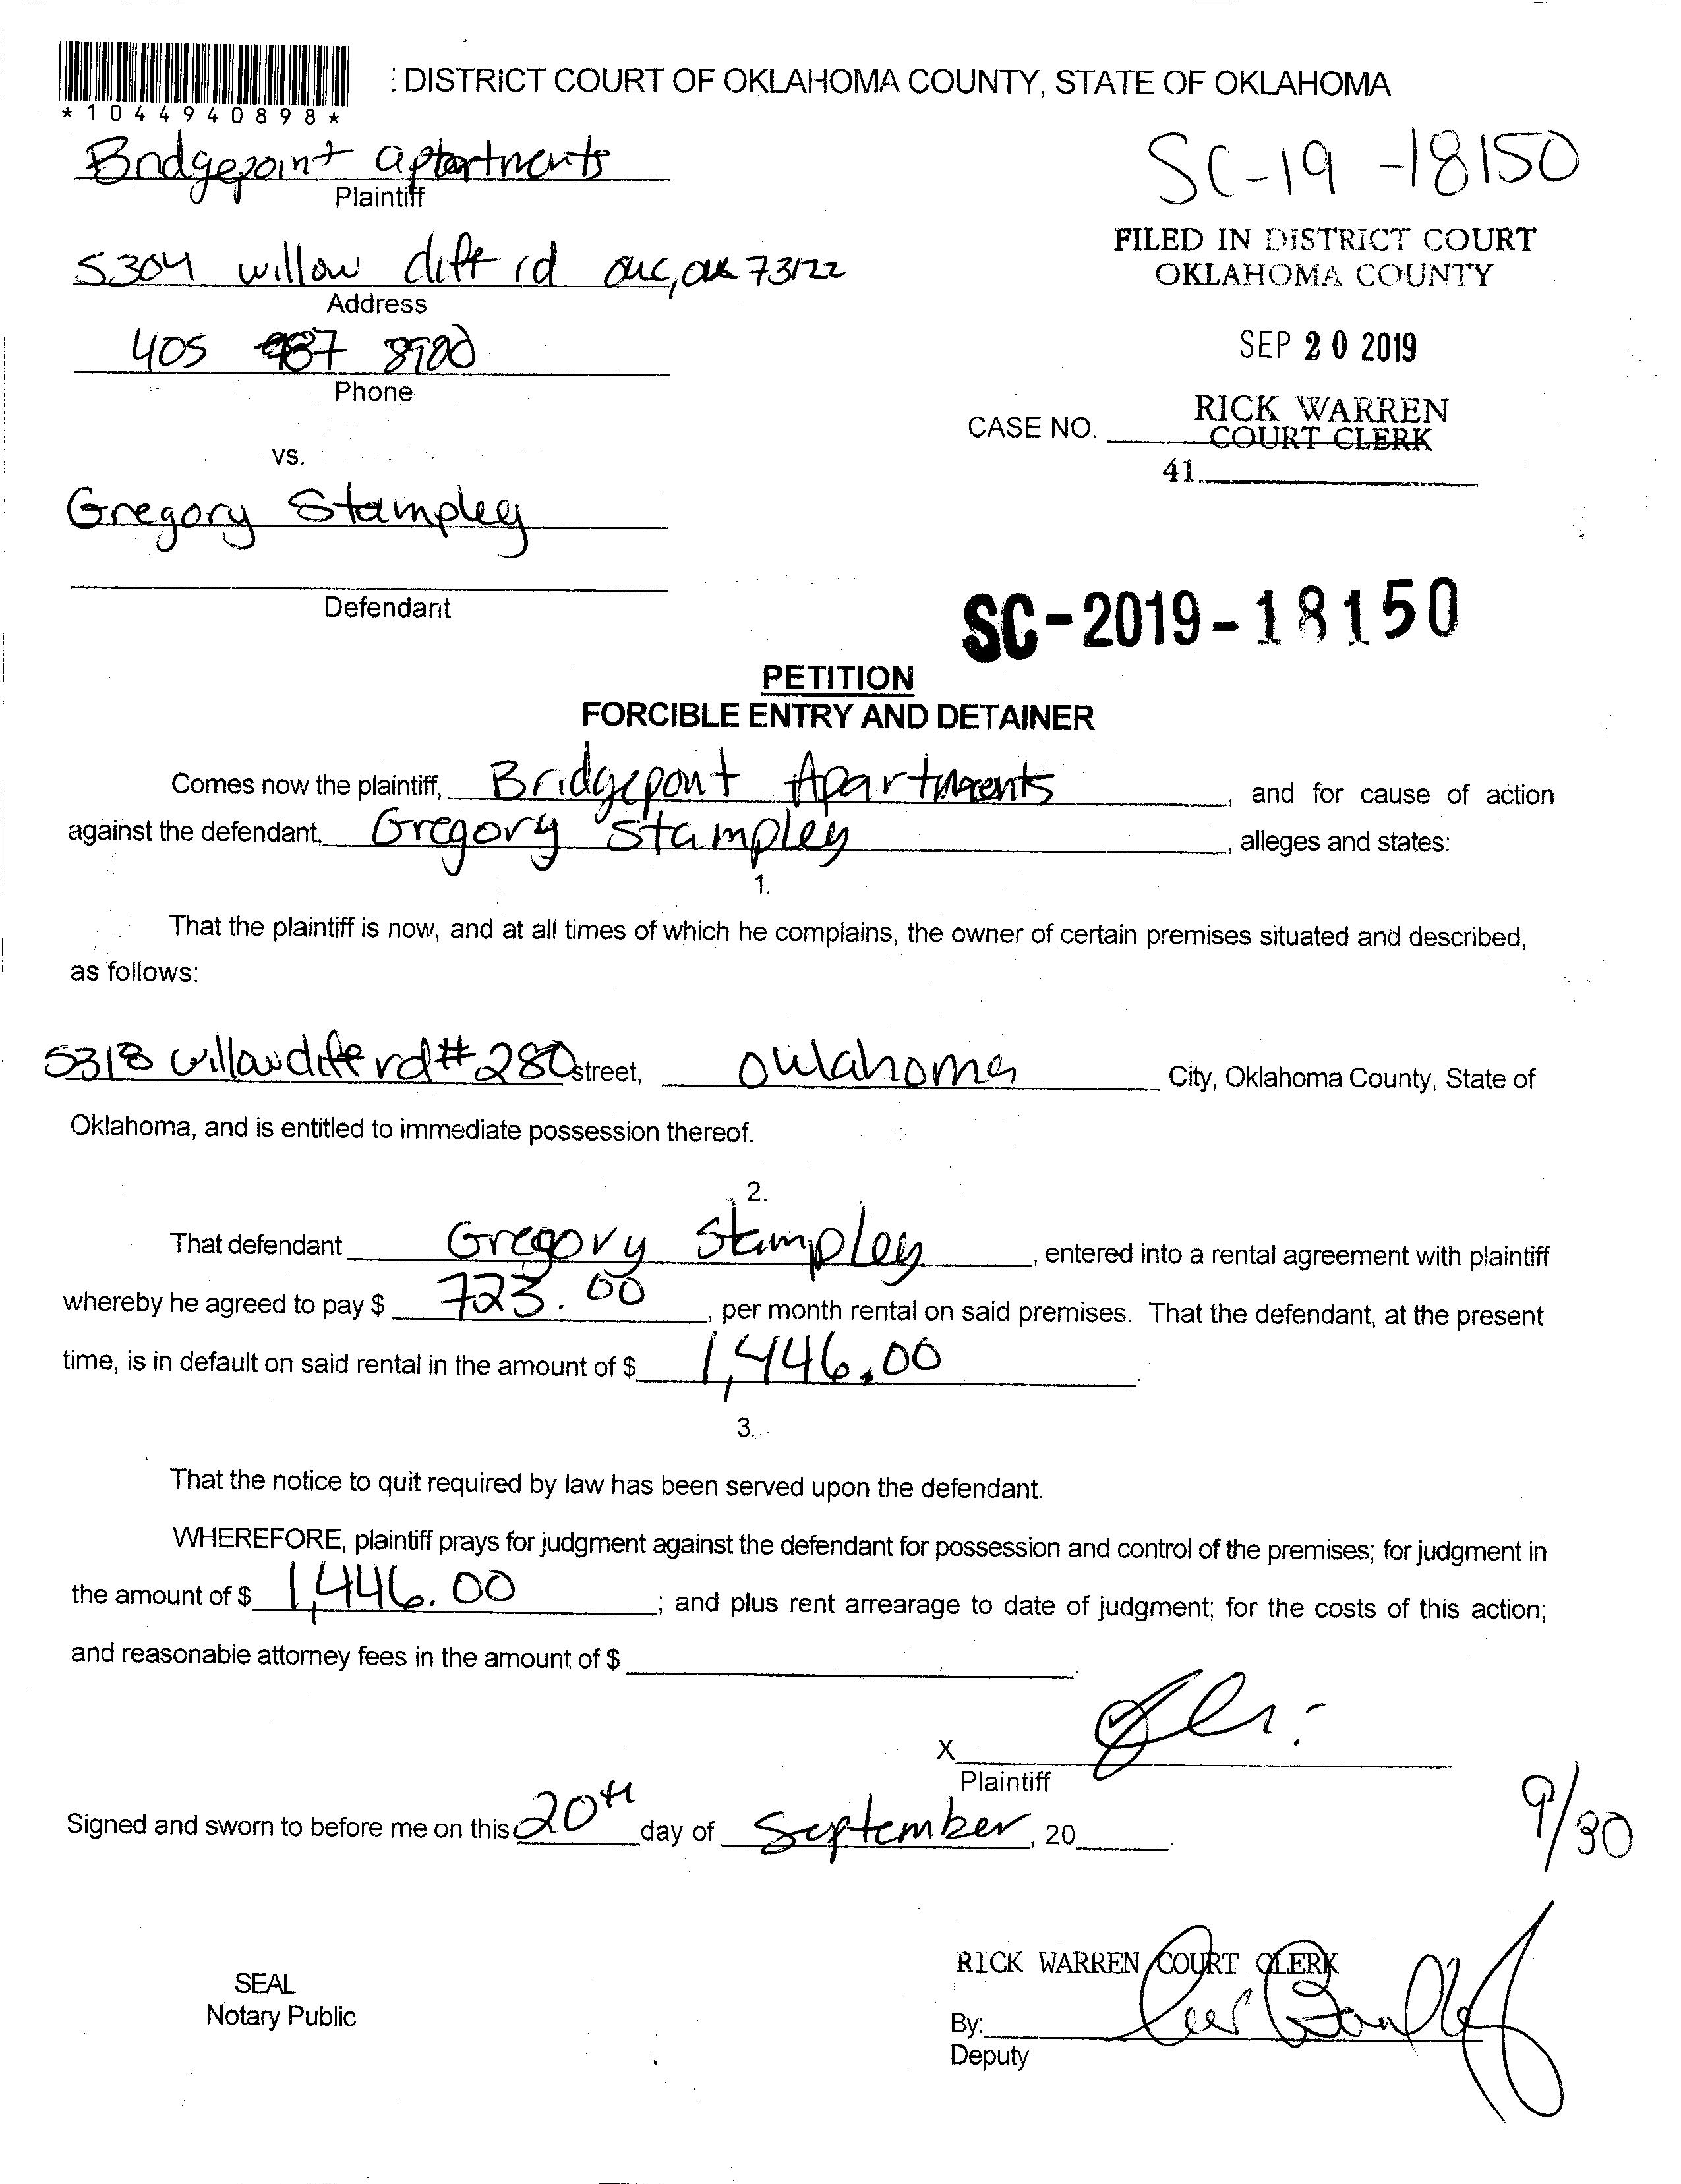 : DISTRICT COURT OF OKLAHOMA COUNTY, STATE OF OKLAHOMA
*1044940898*
Bridgepoint apartments
Plaintiff
SC-19-18150
FILED IN DISTRICT COURT
OKLAHOMA COUNTY
5304 willow cliff rd OKC, OK 73122
Address
SEP 20 2019
405 987 8900
Phone
RICK WARREN
CASE NO. COURT CLERK
41
vs.
Gregory Stampley
Defendant
SC-2019-18150
PETITION
FORCIBLE ENTRY AND DETAINER
Comes now the plaintiff, Bridgepont Apartments, and for cause of action
against the defendant, Gregory Stampley, alleges and states:
1.
That the plaintiff is now, and at all times of which he complains, the owner of certain premises situated and described,
as follows:
5318 willow cliff rd #280 street, Oklahoma City, Oklahoma County, State of
Oklahoma, and is entitled to immediate possession thereof.
2.
That defendant Gregory Stampley, entered into a rental agreement with plaintiff
whereby he agreed to pay $ 723.00, per month rental on said premises. That the defendant, at the present
time, is in default on said rental in the amount of $ 1,446.00.
3.
That the notice to quit required by law has been served upon the defendant.
WHEREFORE, plaintiff prays for judgment against the defendant for possession and control of the premises; for judgment in
the amount of $ 1,446.00; and plus rent arrearage to date of judgment; for the costs of this action;
and reasonable attorney fees in the amount of $ .
X
Plaintiff
Signed and sworn to before me on this 20th day of September, 20 .
9/30
RICK WARREN COURT CLERK
SEAL
Notary Public
By:
Deputy